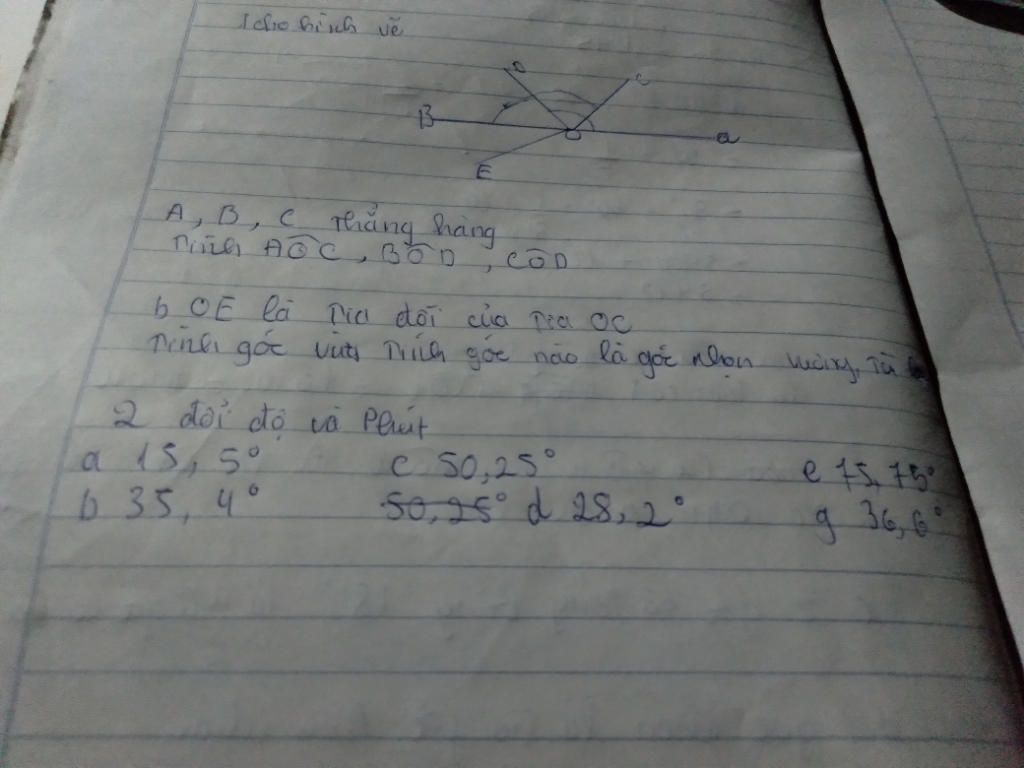 1 cho hình vẽ
D
C
B
O
a
E
A, B, C thẳng hàng
Tính AOC, BOD, COD
b OE là tia đối của tia OC
Tính góc vừa tính góc nào là góc nhọn vuông, tù
2 đổi độ và Phút
a 15, 5° c 50,25° e 75,75°
b 35, 4° 50,25° d 28,2° g 36,6°